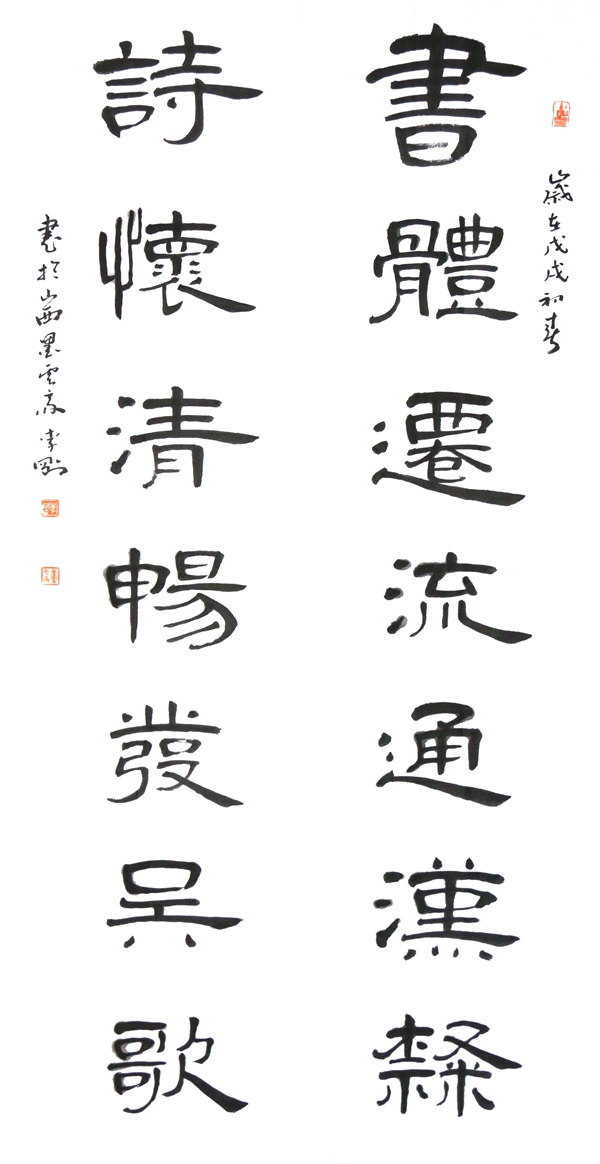 歲在戊戌初春
書體遷流通漢隸
詩懷清暢發吳歌
書於山西墨雲齋 李剛